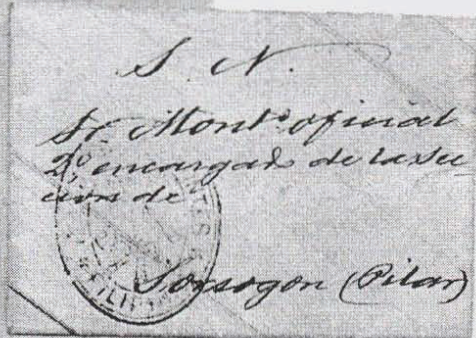 S. N.
Sr. Mont.ˢ oficial
2º, encargado de la Sec
cion de
Sorsogon (Pilar)